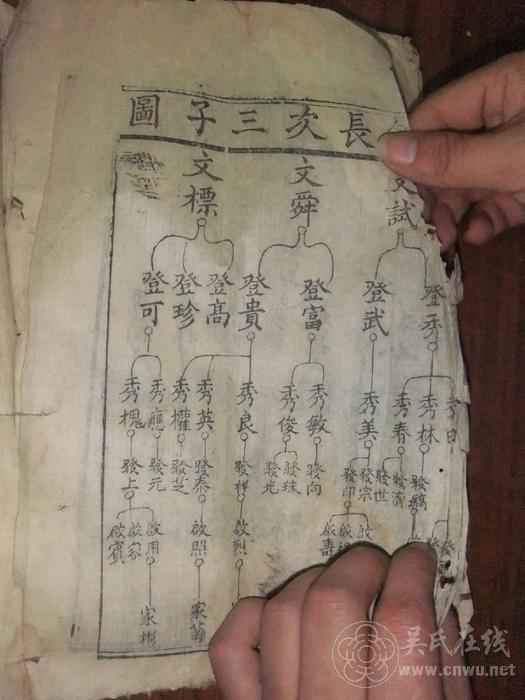 長次三子圖
文試 文舜 文標
登武 登富 登貴 登高 登珍 登可
秀林 秀春 秀美 秀敏 秀俊 秀良 秀英 秀權 秀應 秀槐
發濟 發世 發宗 發印 發向 發珠 發光 發祥 發泰 發芝 發元 發上
啟壽 啟烈 啟照 啟用 啟容 啟賓
家 家彬
吴氏在线
www.cnwu.net